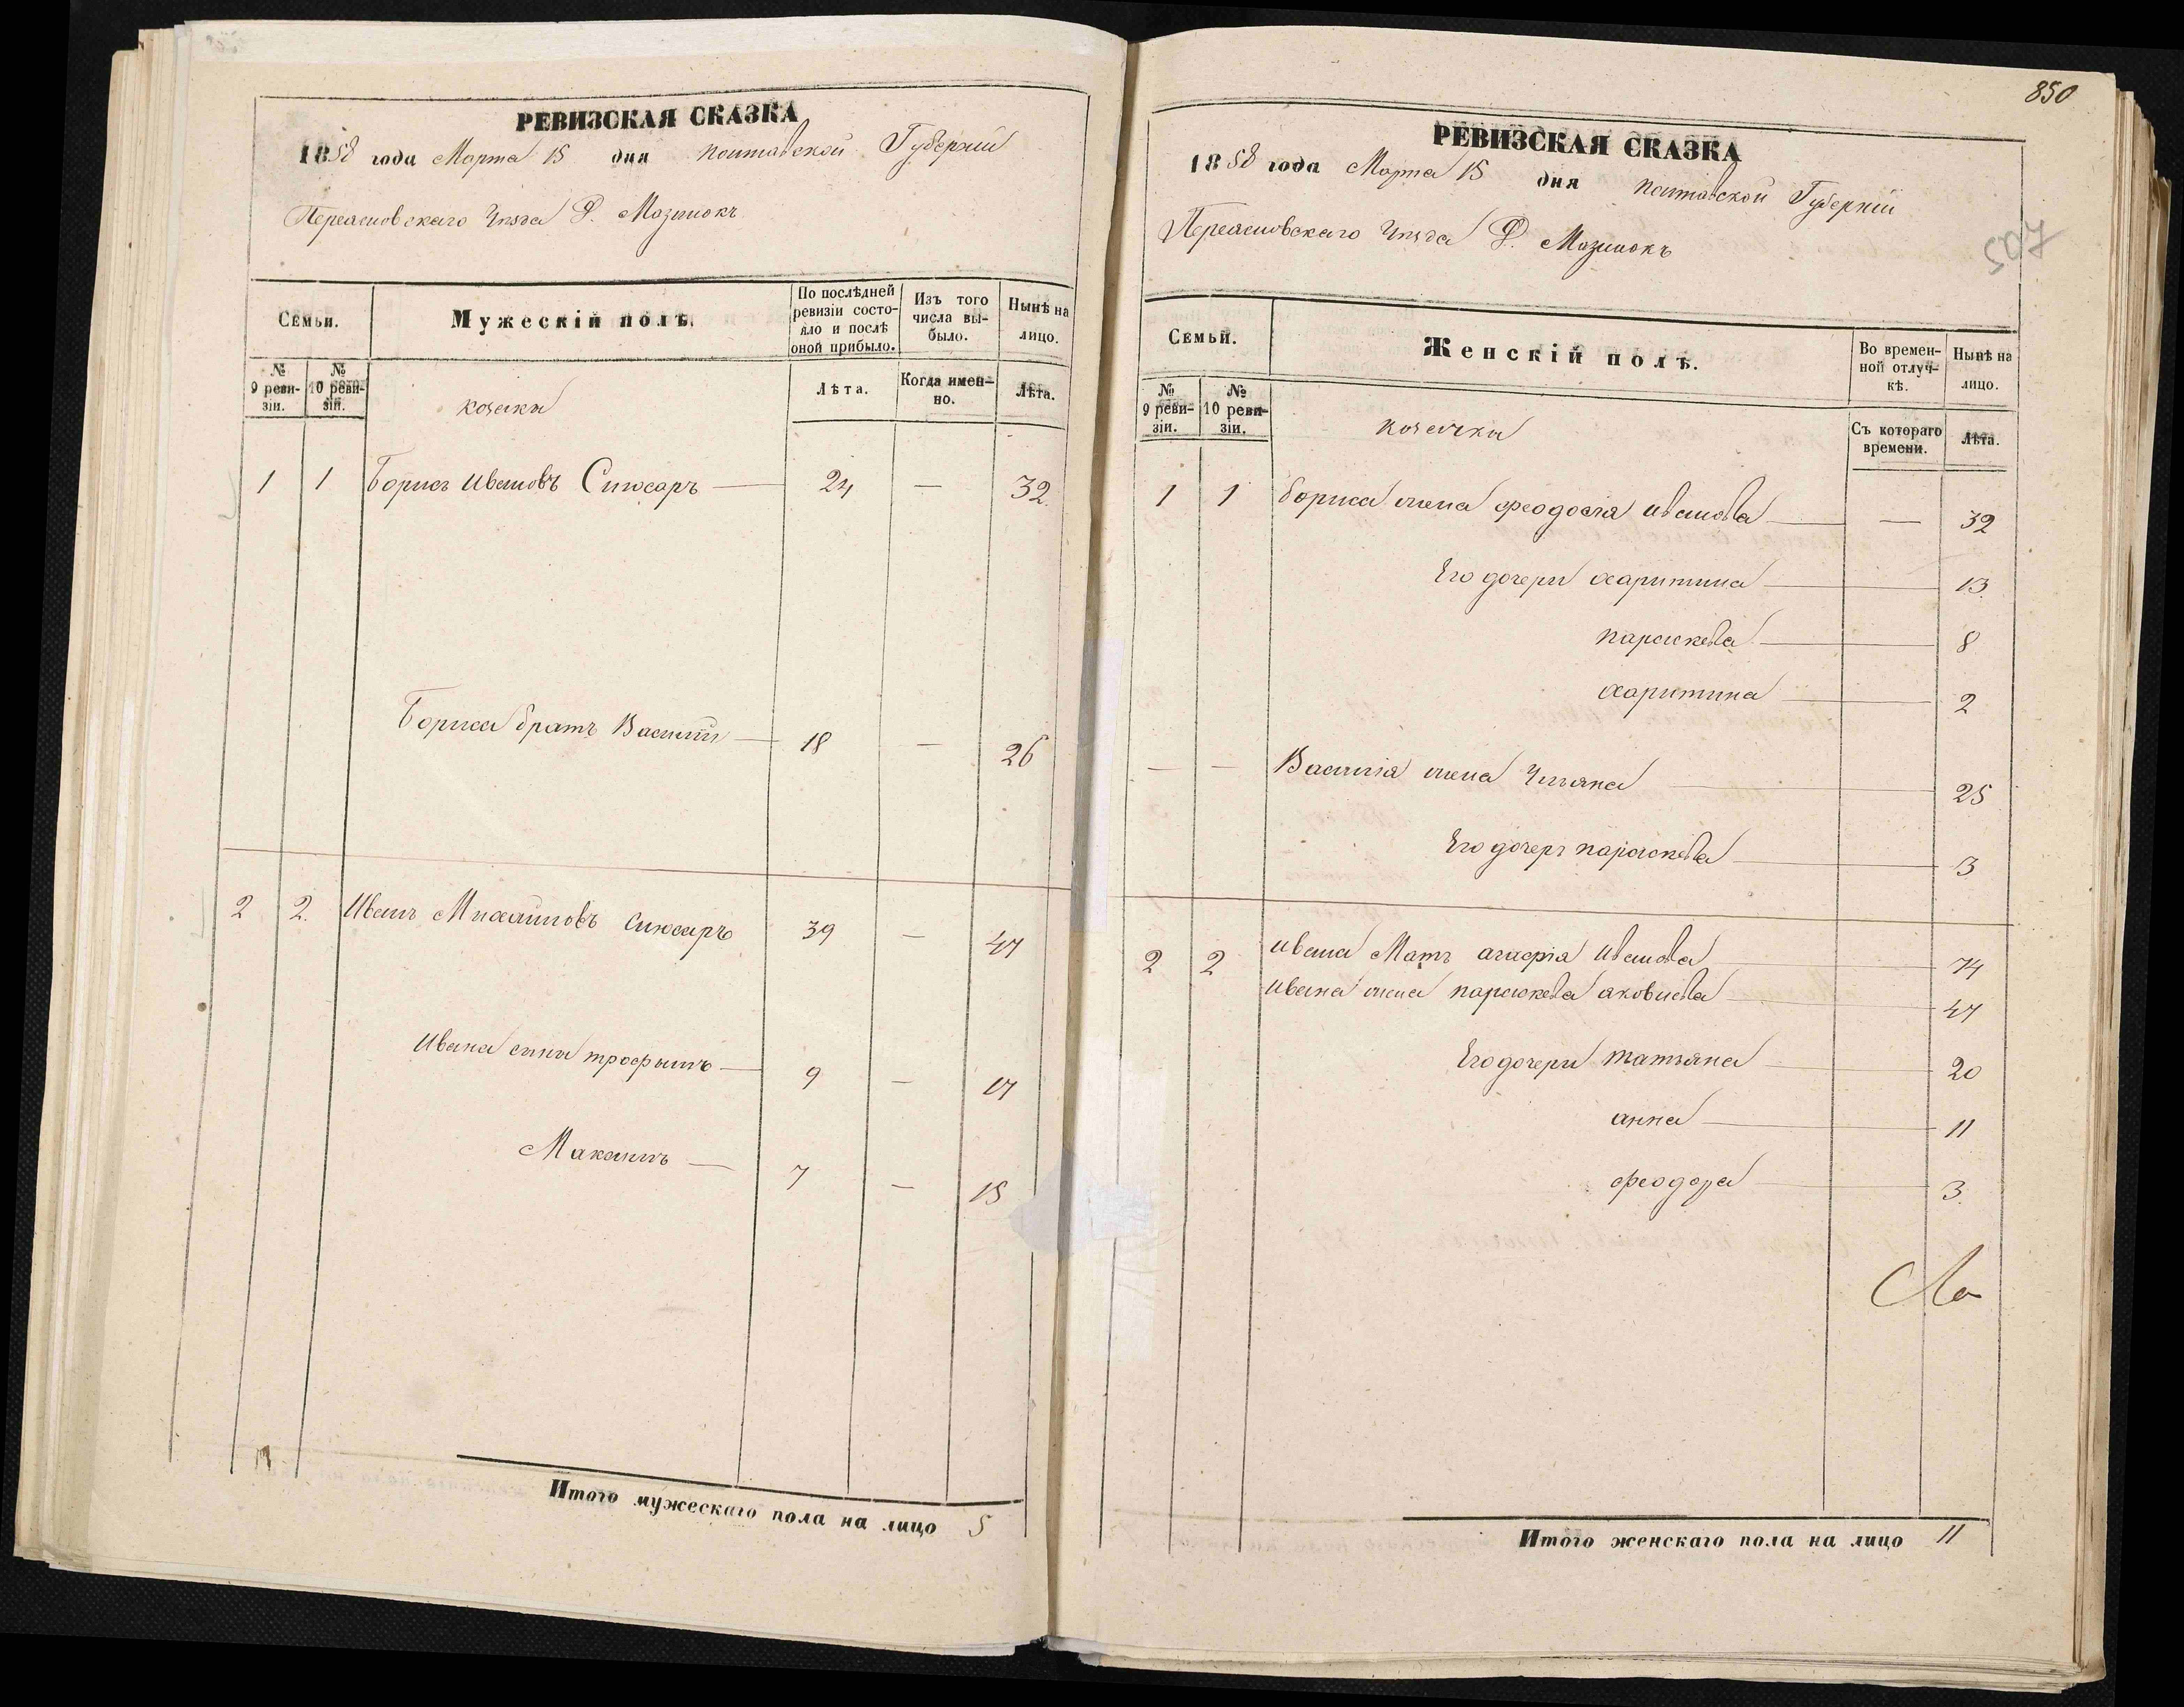 РЕВИЗСКАЯ СКАЗКА
1858 года Марта 15 дня Полтавской Губернiи
Переясловскаго Уѣзда Д. Мазинокъ
Семьи. Мужескiй полъ. По послѣдней ревизiи состояло и послѣ оной прибыло. Изъ того числа выбыло. Нынѣ на лицо.
№ 9 ревизiи. № 10 ревизiи. Лѣта. Когда именно. Лѣта.
козаки
1 1 Борисъ Ивановъ Слюсаръ — 24 — 32
Бориса братъ Василiй — 18 — 26
2 2. Иванъ Михайловъ Слюсаръ 39 — 47
Ивана сыны трофымъ — 9 — 17
Максимъ — 7 — 15
Итого мужескаго пола на лицо 5
850
РЕВИЗСКАЯ СКАЗКА
1858 года Марта 15 дня Полтавской Губернiи
507
Переясловскаго Уѣзда Д. Мазинокъ
Семьи. Женскiй полъ. Во временной отлучкѣ. Нынѣ на лицо.
№ 9 ревизiи. № 10 ревизiи. Съ котораго времени. Лѣта.
козачки
1 1 Бориса жена феодосiя иванова — — 32
Его дочери харитина — 13
параскева — 8
харитина — 2
— — Василiя жена Ульяна — 25
Его дочерь параскева — 3
2 2 Ивана Мать агафiя Иванова — 74
Ивана жена параскева яковлева — 47
Его дочери татьяна — 20
анна — 11
феодора — 3.
Итого женскаго пола на лицо 11